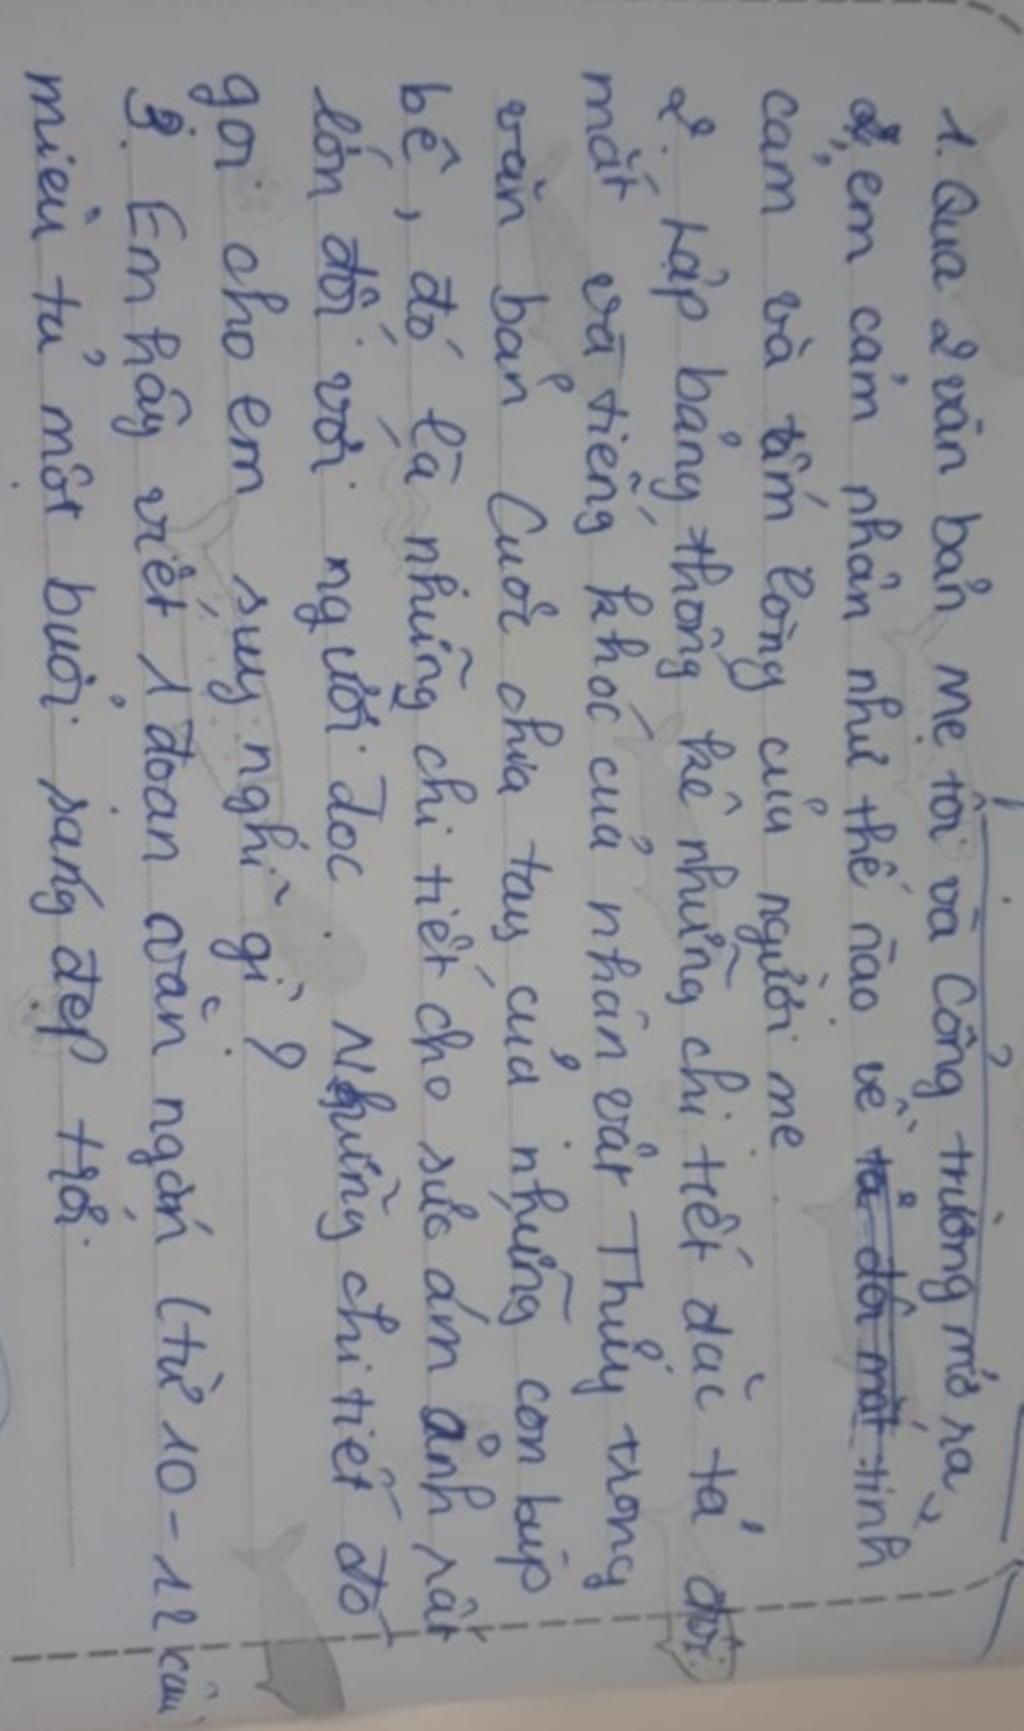 1. Qua 2 văn bản Mẹ tôi và Cổng trường mở ra,
em cảm nhận như thế nào về tả đôi mắt tình
cảm và tấm lòng của người mẹ
2. Lập bảng thống kê những chi tiết đặc tả đôi
mắt và tiếng khóc của nhân vật Thủy trong
văn bản Cuộc chia tay của những con búp
bê, đó là những chi tiết cho sức ám ảnh rất
lớn đối với người đọc. Những chi tiết đó
gợi cho em suy nghĩ gì?
3. Em hãy viết 1 đoạn văn ngắn (từ 10-12 câu
miêu tả một buổi sáng đẹp trời.